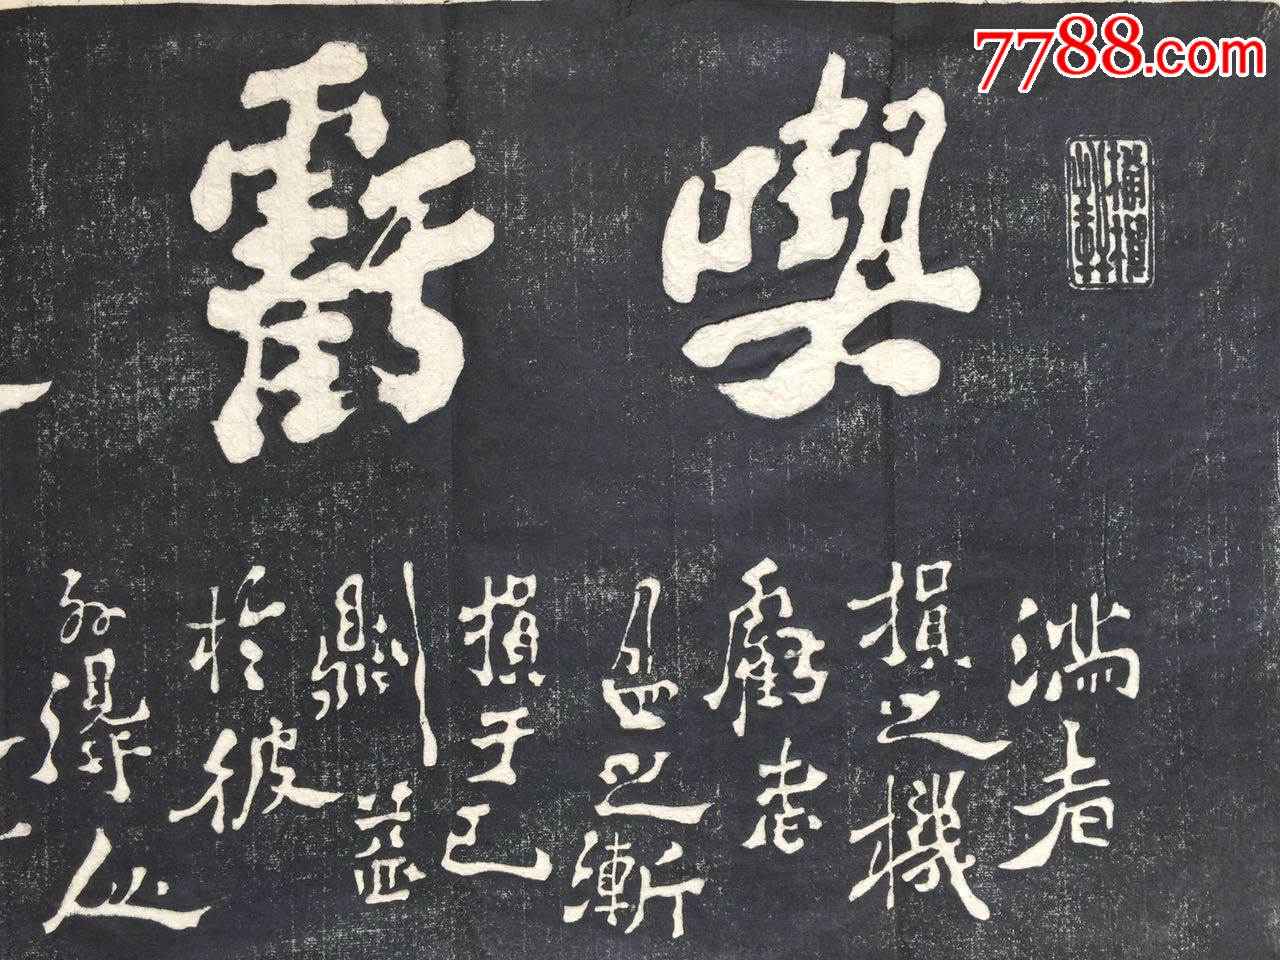 7788.com
喫虧
滿者
損之機
虧者
盈之漸
損于己
則益
於彼
外得人